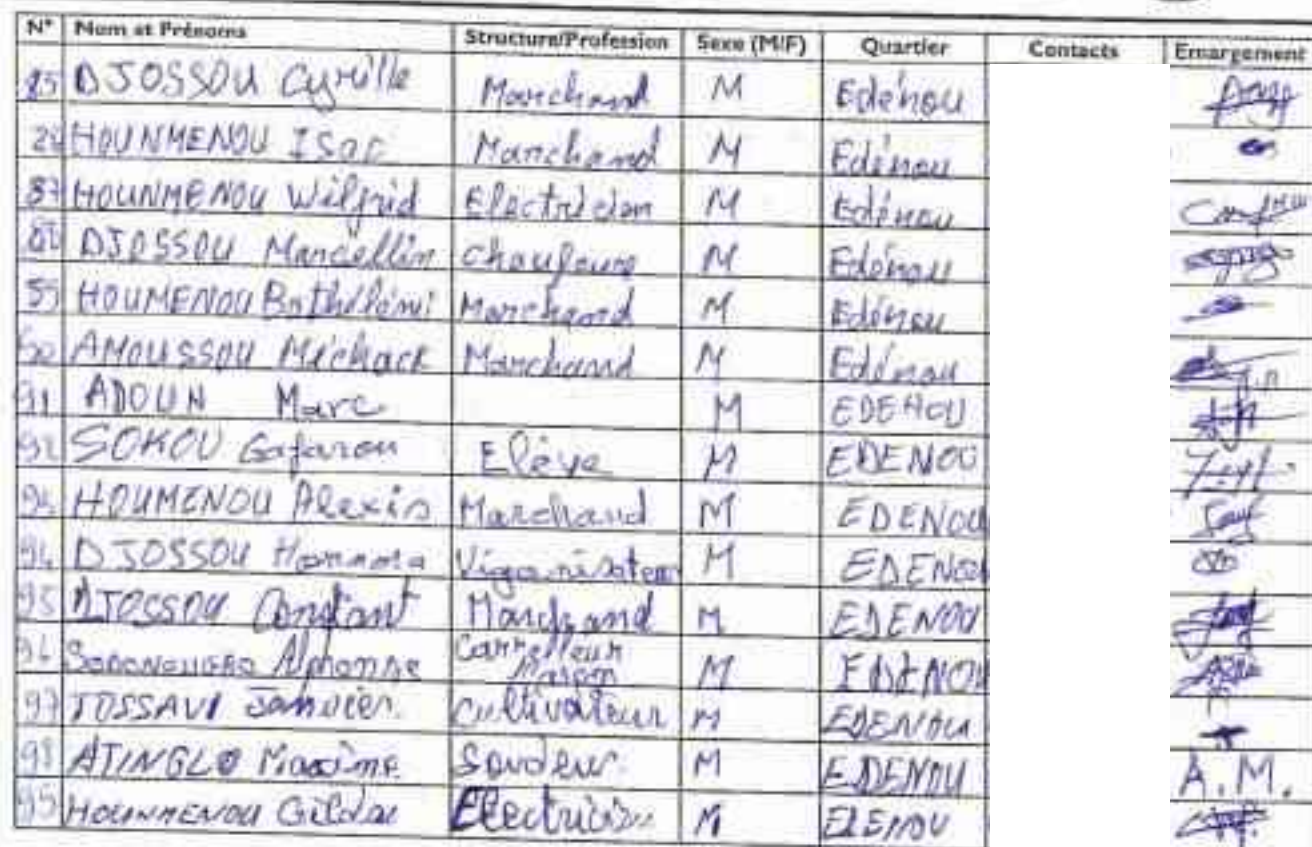 N° Nom et Prénoms Structure/Profession Sexe (M/F) Quartier Contacts Emargement
85 DJOSSOU Cyrille Marchand M Edénou
HOUNMENOU Isac Marchand M Edénou
87 HOUNMENOU Wilfrid Electricien M Edénou
DJOSSOU Marcellin Chaufeure M Edénou
HOUMENOU Bathélémi Marchand M Edénou
AMOUSSOU Michack Marchand M Edénou
91 ADOUN Marc M EDENOU
92 SOKOU Gafarou Elève M EDENOU
HOUMENOU Alexis Marchand M EDENOU
94 DJOSSOU M EDENOU
95 DJOSSOU Constant Marchand M EDENOU
96 Alphonse Carreleur Maçon M EDENOU
97 TOSSAVI Janvier Cultivateur M EDENOU
98 ATINGLO Maxime Soudeur M EDENOU A.M.
HOUNMENOU Gildas Electricien M